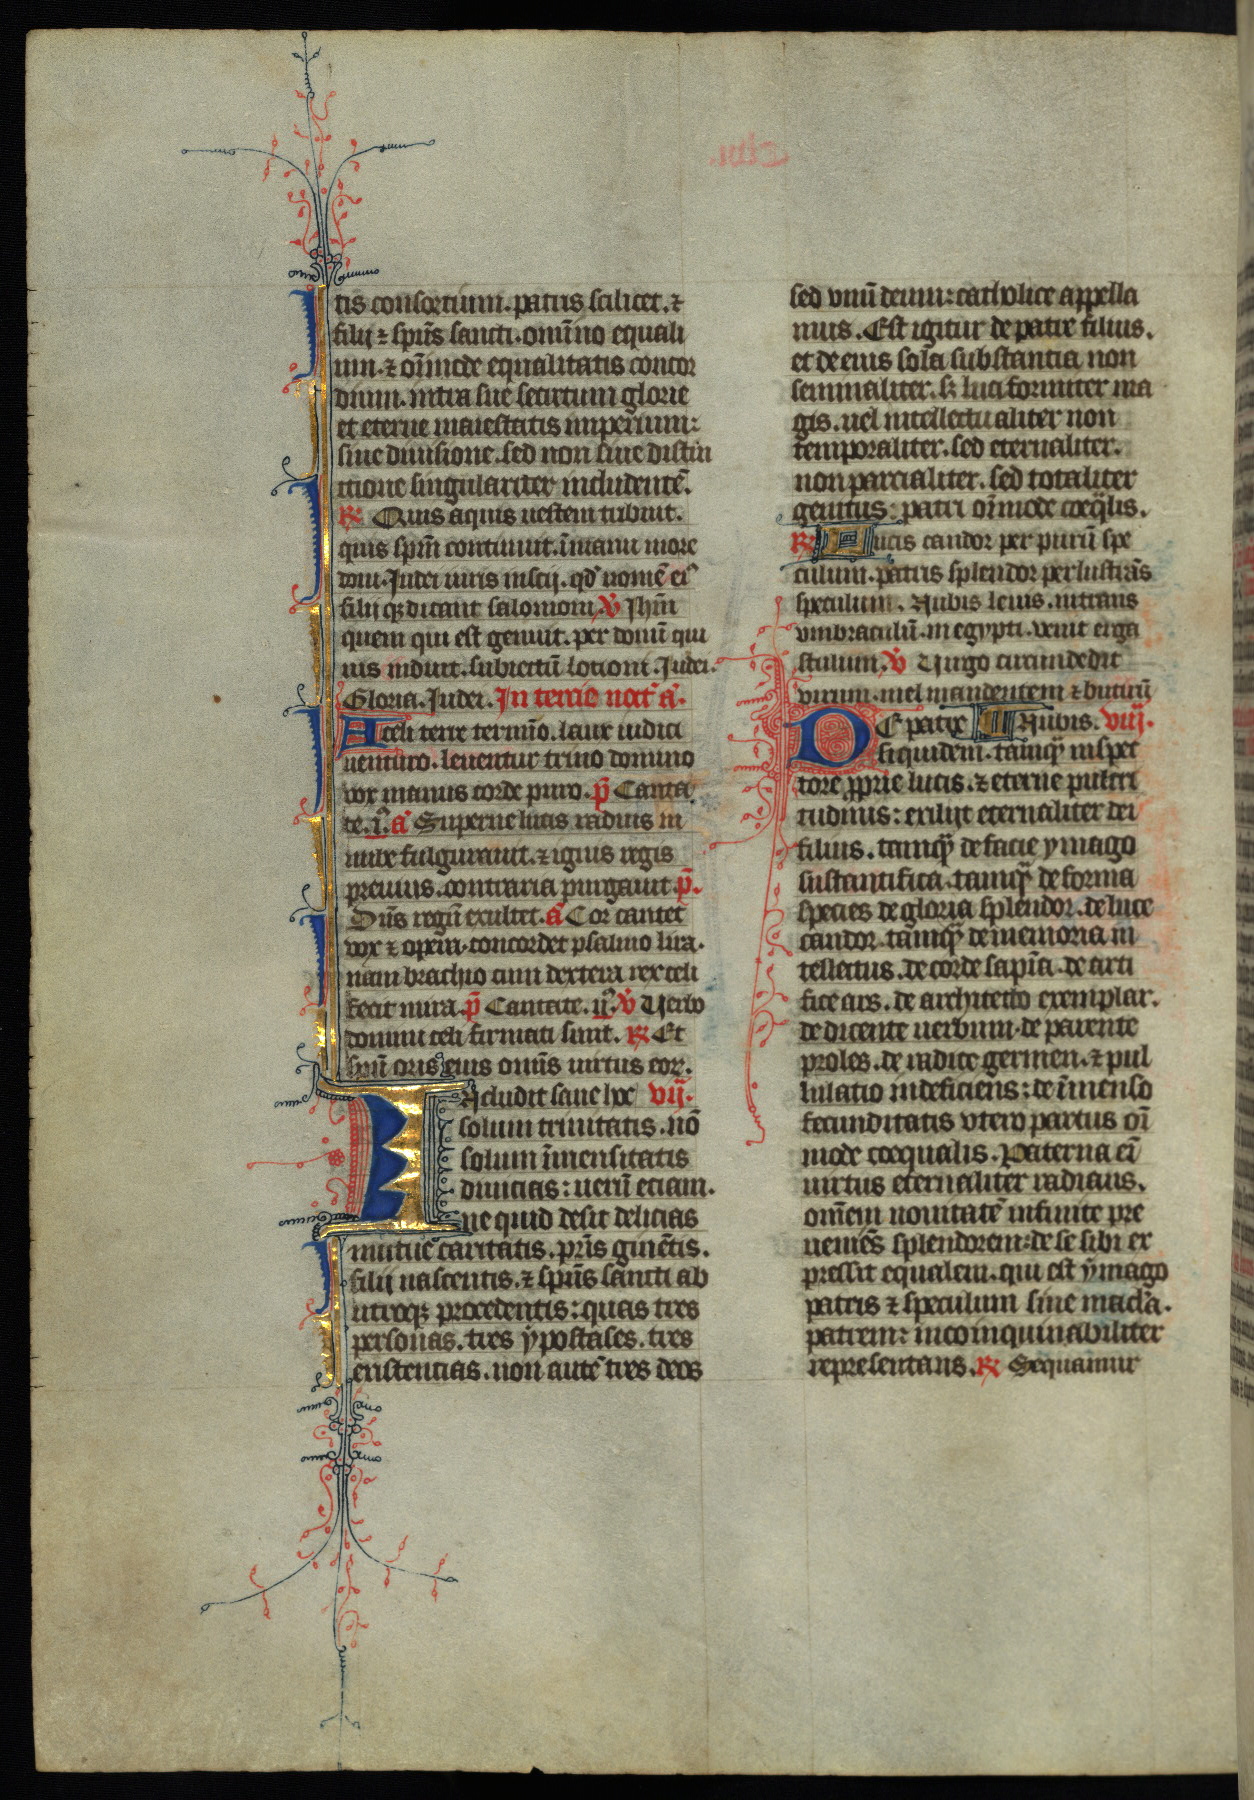 tis consortium. patris scilicet. ⁊
filij ⁊ sp̄us sancti. om̄ino equali
um. ⁊ oīmode equalitatis concor
dium. intra sue secretum glorie
et eterne maiestatis imperium:
sine diuisione. sed non sine distin
ctione singulariter includentē.
℟ Quis aquis uestem tribuit.
quis sp̄m continuit. ī manu more
doni. Judei iuris inscij. qd̄ nomē ei᷒
filij qꝫ dicant salomoni. ℣ Jhm̄
quem qui est genuit. per donū qui
uis induit. subiectū lotioni. Judei.
Gloria. Judei. In tercio noct᷒ a᷒.
A celi terre termīo. laux iudici
uenturo. leuentur trino domino
vox manus corde puro. p̄ Canta
te. i. a᷒ Superne lucis radius in
nube fulgurauit. ⁊ ignis regis
preuius. contraria purgauit. p̄.
Dn̄s regn̄ exultet. a᷒ Cor cantet
vox ⁊ opera. concordet psalmo lira.
nam brachio cum dextera rex celi
fecit mira. p̄ Cantate. ii. ℣ Uerbo
domini celi firmati sunt. ℟ Et
spū oris eius om̄is uirtus eoꝝ.
Includit sane hec vij.
solum trinitatis. nō
solum īmensitatis
diuicias: uerū etiam.
ne quid desit delicias
mutue caritatis. pr̄is gin̄etis.
filij nascentis. ⁊ sp̄us sancti ab
utroqꝫ procedentis: quas tres
personas. tres ypostases. tres
existencias. non autē tres deos
sed vnū deum: catholice appella
mus. Est igitur de patre filius.
et de eius sola substantia non
seminaliter. sꝫ luci formiter ma
gis. uel intellectualiter non
temporaliter. sed eternaliter.
non parcialiter. sed totaliter
genitus: patri oīmode coeq̄lis.
℟ Lucis candor per purū spe
culum. patris splendor perlustrās
speculum. Nubis leuis. intrans
vmbraculū. in egypti. venit erga
stulum. ℣ Uirgo circundedit
virum. mel mandentem ⁊ butirū
DE patre Nubis. viij.
siquidem. tamq̄ inspec
tore ꝓprie lucis. ⁊ eterne pulcri
tudinis: exiluit eternaliter dei
filius. tamq̄ de facie ymago
sustantifica. tamq̄ de forma
species de gloria splendor. de luce
candor. tamq̄ de memoria in
tellectus. de corde sapīa. de arti
fice ars. de architecto exemplar.
de dicente uerbum. de parente
proles. de radice germen. ⁊ pul
lulatio indeficiens: de īmenso
fecunditatis vtero partus oī
mode coequalis. Paterna eī
uirtus eternaliter radians.
om̄em nouitatē infinite pre
ueniēs splendorem: de se sibi ex
pressit equalem. qui est ymago
patris ⁊ speculum sine macl̄a.
patrem: incoinquinabiliter
representans. ℟ Sequamur